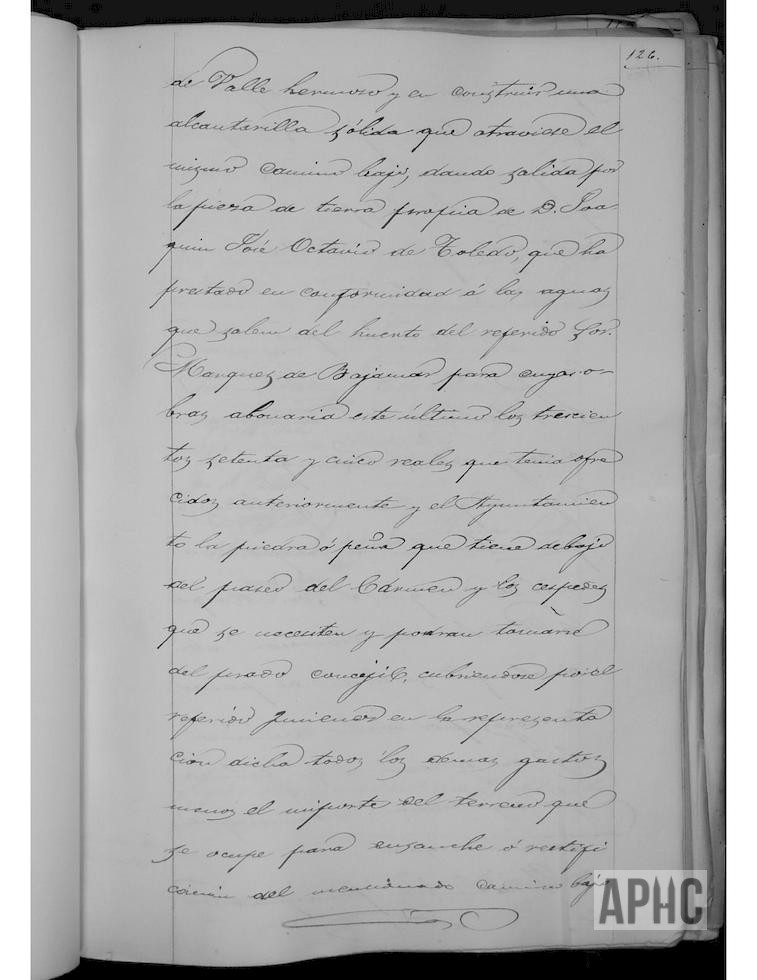 126.
de Valle hermoso y en construir una
alcantarilla sólida que atraviese el
mismo camino bajo, dando salida por
la pieza de tierra propia de D. Joa-
quin José Octavio de Toledo, que ha
prestado en conformidad á las aguas
que salen del huerto del referido Sor.
Marques de Bajamar para cuyas o-
bras abonaria este último los trescien
tos setenta y cinco reales que tenia ofre
cidos anteriormente y el Ayuntamien
to la piedra ó peña que tiene debajo
del paseo del Cármen y los cespedes
que se necesiten y podran tomarse
del prado concejil, cubriendose por el
referido Jimenez en la representa
cion dicha todos los demas gastos
menos el importe del terreno que
se ocupe para ensanche ó rectifi
cacion del mencionado camino bajo
APHC